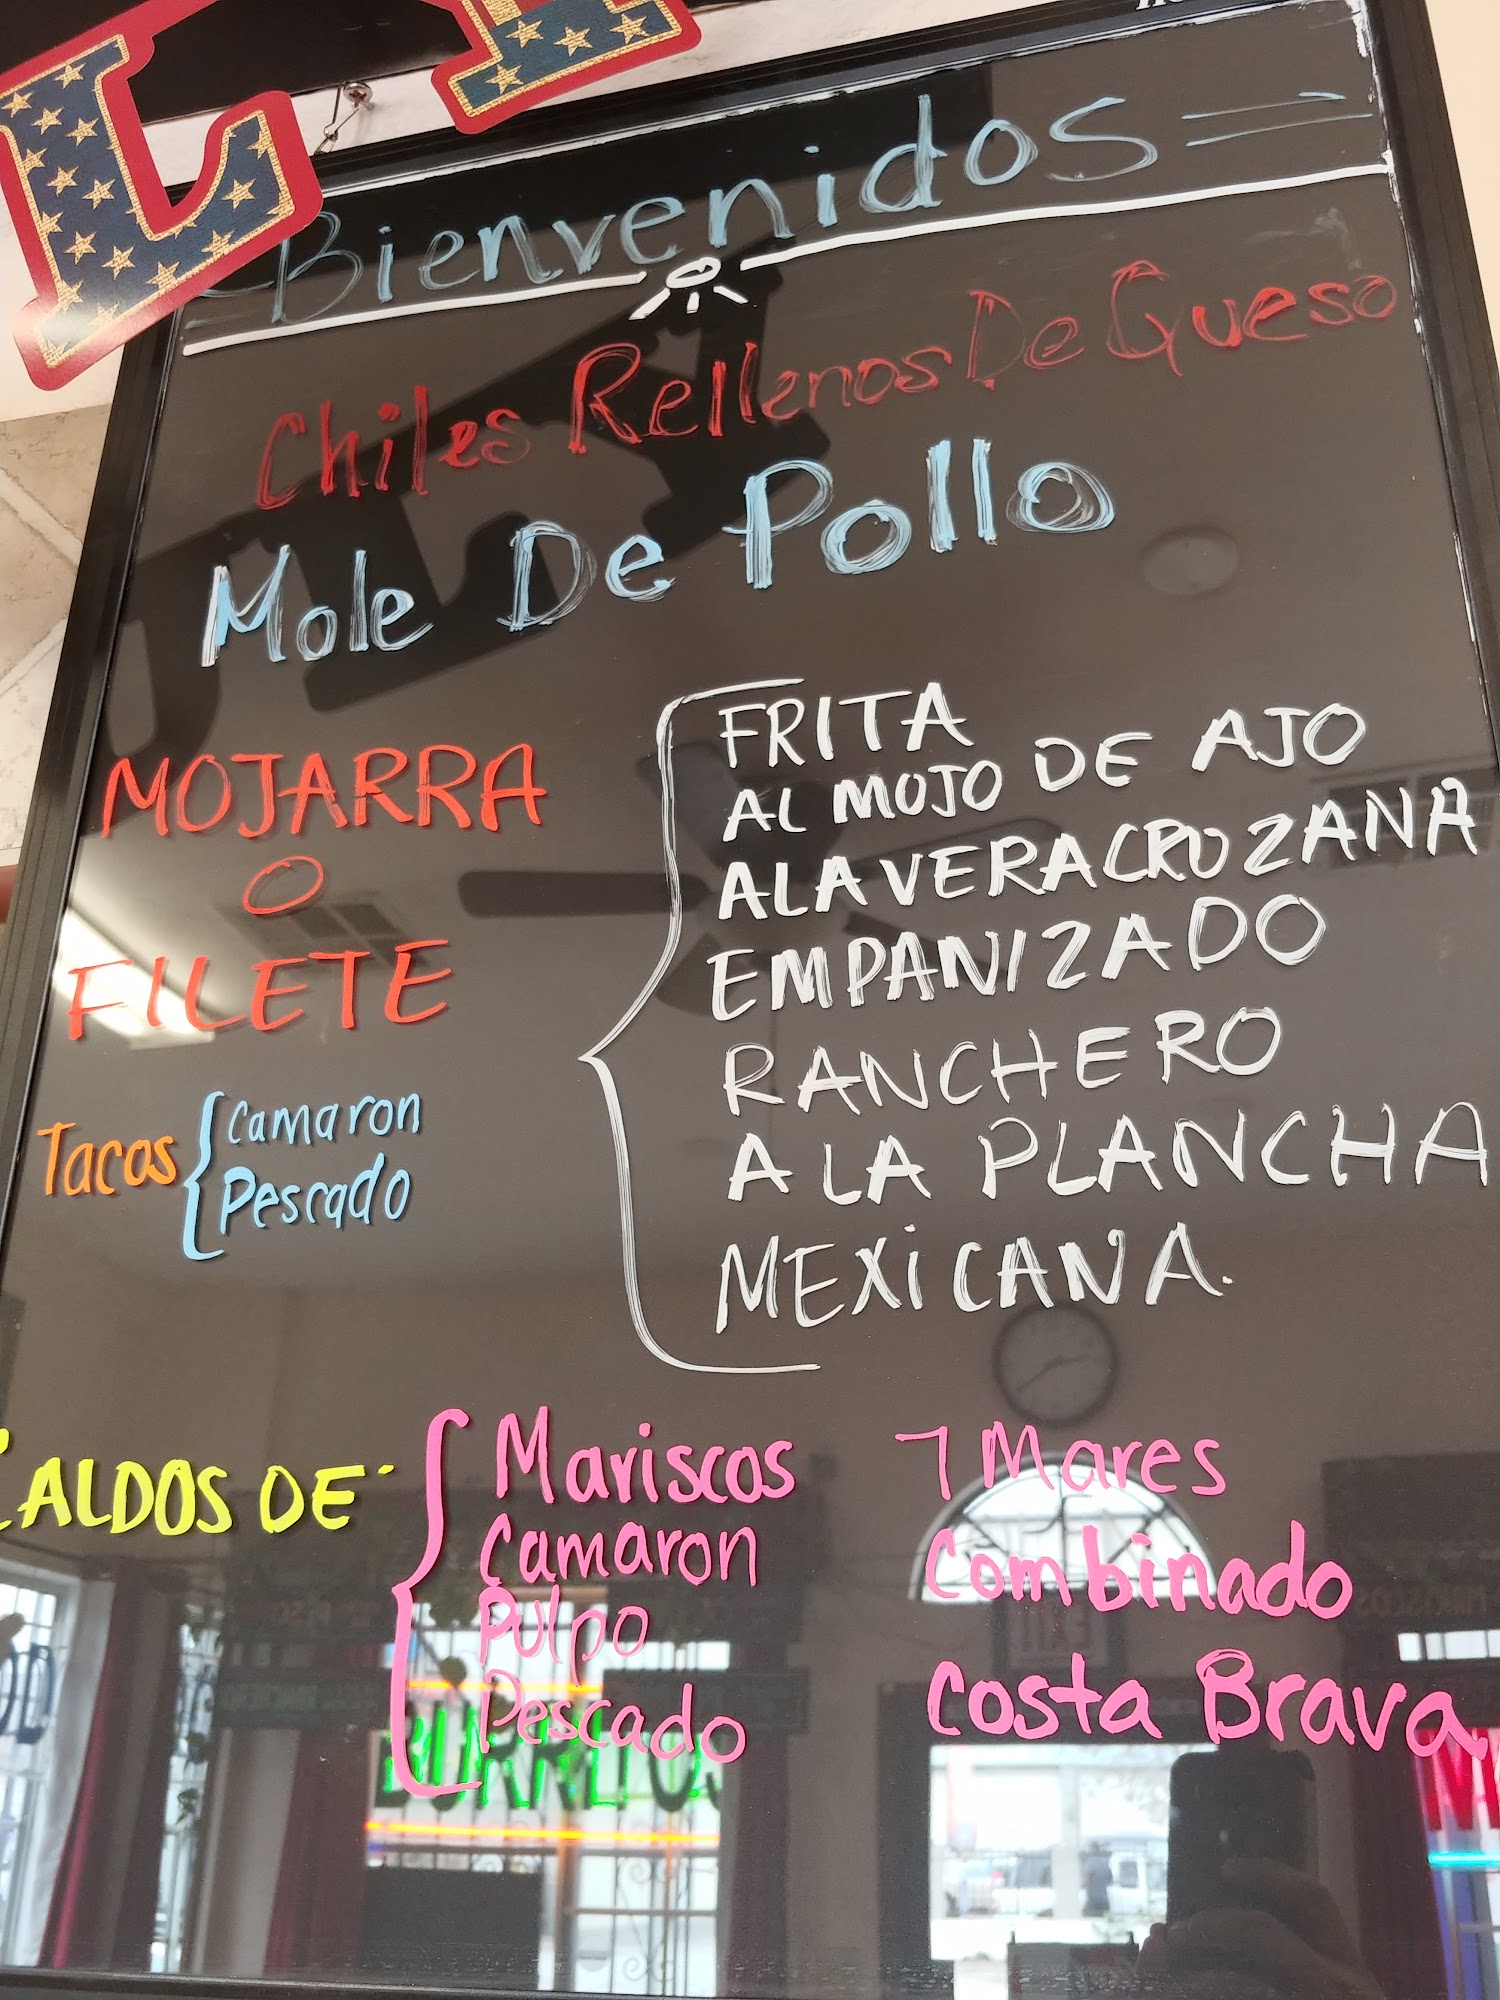 Bienvenidos
Chiles Rellenos De Queso
Mole De Pollo
MOJARRA
O
FILETE
FRITA
AL MOJO DE AJO
A LA VERACRUZANA
EMPANIZADO
RANCHERO
A LA PLANCHA
MEXICANA.
Tacos
Camaron
Pescado
CALDOS DE
Mariscos
Camaron
Pulpo
Pescado
7 Mares
Combinado
Costa Brava
BURRITOS